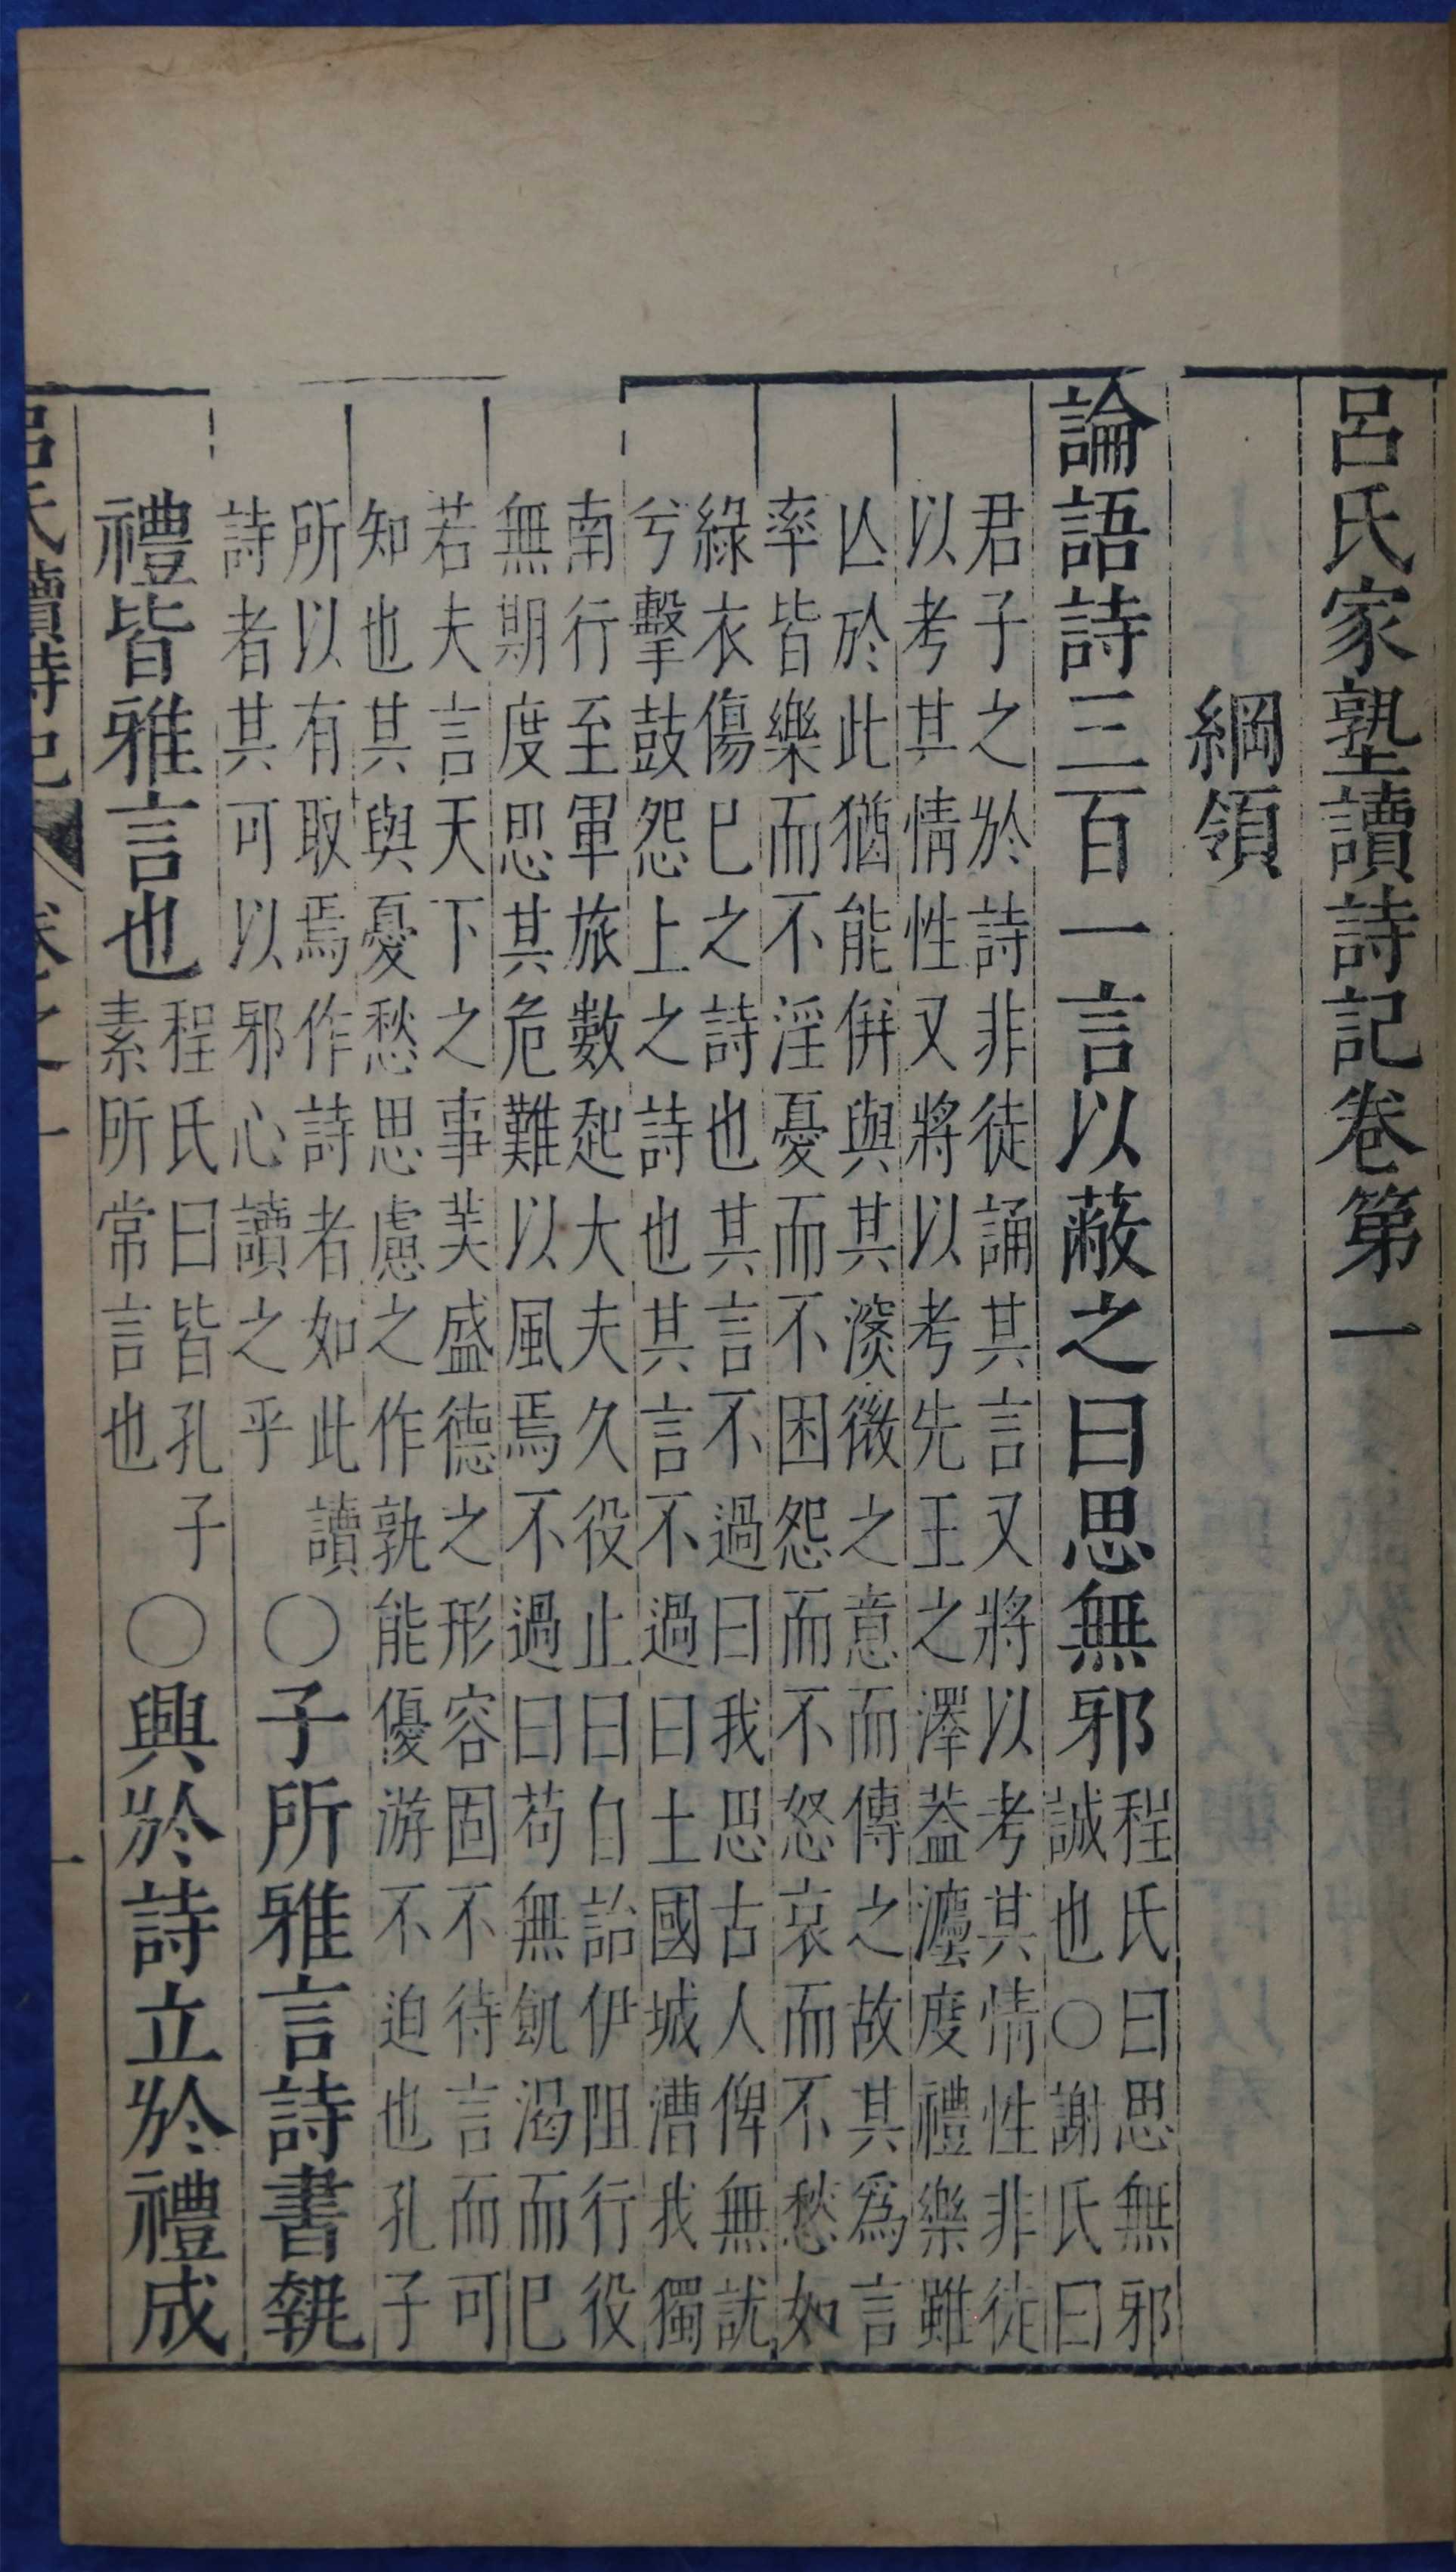 呂氏家塾讀詩記卷第一
綱領
論語詩三百一言以蔽之曰思無邪
程氏曰思無邪
誠也○謝氏曰
君子之於詩非徒誦其言又將以考其情性非徒
以考其情性又將以考先王之澤葢灋度禮樂雖
亾於此猶能倂與其㴱微之意而傳之故其爲言
率皆樂而不淫憂而不困怨而不怒哀而不愁如
綠衣傷巳之詩也其言不過曰我思古人俾無訧
兮擊鼓怨上之詩也其言不過曰土國城漕我獨
南行至軍旅數起大夫久役止曰自詒伊阻行役
無期度思其危難以風焉不過曰苟無飢渴而巳
若夫言天下之事美盛德之形容固不待言而可
知也其與憂愁思慮之作孰能優游不迫也孔子
所以有取焉作詩者如此讀
詩者其可以邪心讀之乎
○子所雅言詩書執
禮皆雅言也
程氏曰皆孔子
素所常言也
○興於詩立於禮成
呂氏讀詩記 卷之一
一